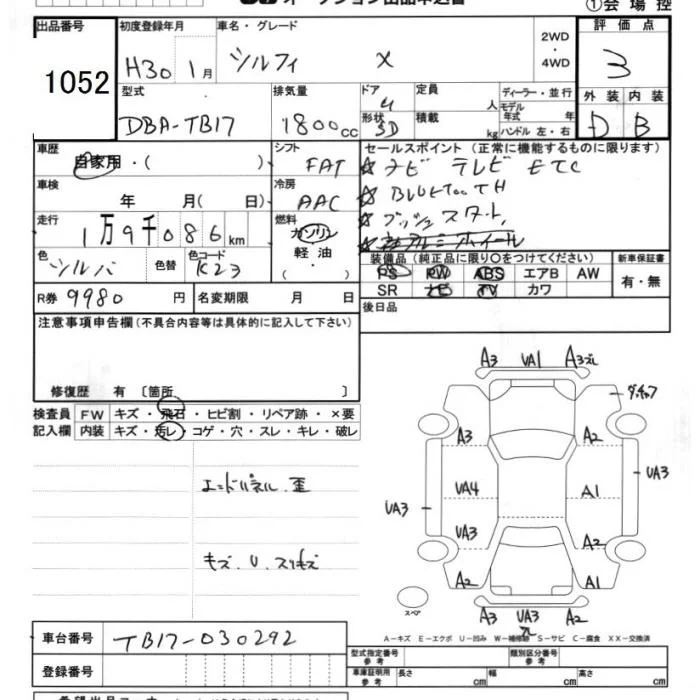 ①会 場 控
出品番号 初度登録年月 車名・グレード 2WD ・ 4WD 評 価 点
1052 H30 1月 シルフィ X 3
型式 排気量 ドア 定員 ディーラー・並 行
4 人 モデル年式 年 外 装 内 装
DBA-TB17 1800cc 形状 5D 積載 kg ハンドル 左・右 D B
車歴 シフト セールスポイント (正常に機能するものに限ります)
自家用・( ) FAT ☆ナビ テレビ ETC
車検 冷房 ☆ BLUETOOTH
年 月( 日) AAC ☆プッシュスタート,
走行 燃料
1万9千086km ガソリン ☆アルミホイール
色 シルバ 色替 色コード K23 軽 油 装備品 (純正品に限り○をつけてください) 新車保証書
(・) PS PW ABS エアB AW 有・無
R券 9980 円 名変期限 月 日 SR ナビ TV カワ
後日品
注意事項申告欄(不具合内容等は具体的に記入して下さい)
修復歴 有 〔箇所 〕
検査員 FW キズ・飛石・ヒビ割・リペア跡・×要
記入欄 内装 キズ・汚レ・コゲ・穴・スレ・キレ・破レ
エンドパネル 歪
キズ、U、スリキズ
A3 VA1 A3ズレ
タッチアップ
A3 A2
VA3 VA4 A1 VA3
VA3 A2
A2 A1
スペア
A3 VA3 A2
ズレ
A―キズ E―エクボ U―凹み W―補修跡 S―サビ C―腐食 XX―交換済
車台番号 TB17-030292 型式指定番号 参 考 類別区分番号 参 考
登録番号 車庫証明用 参 考 長さ cm 幅 cm 高さ cm